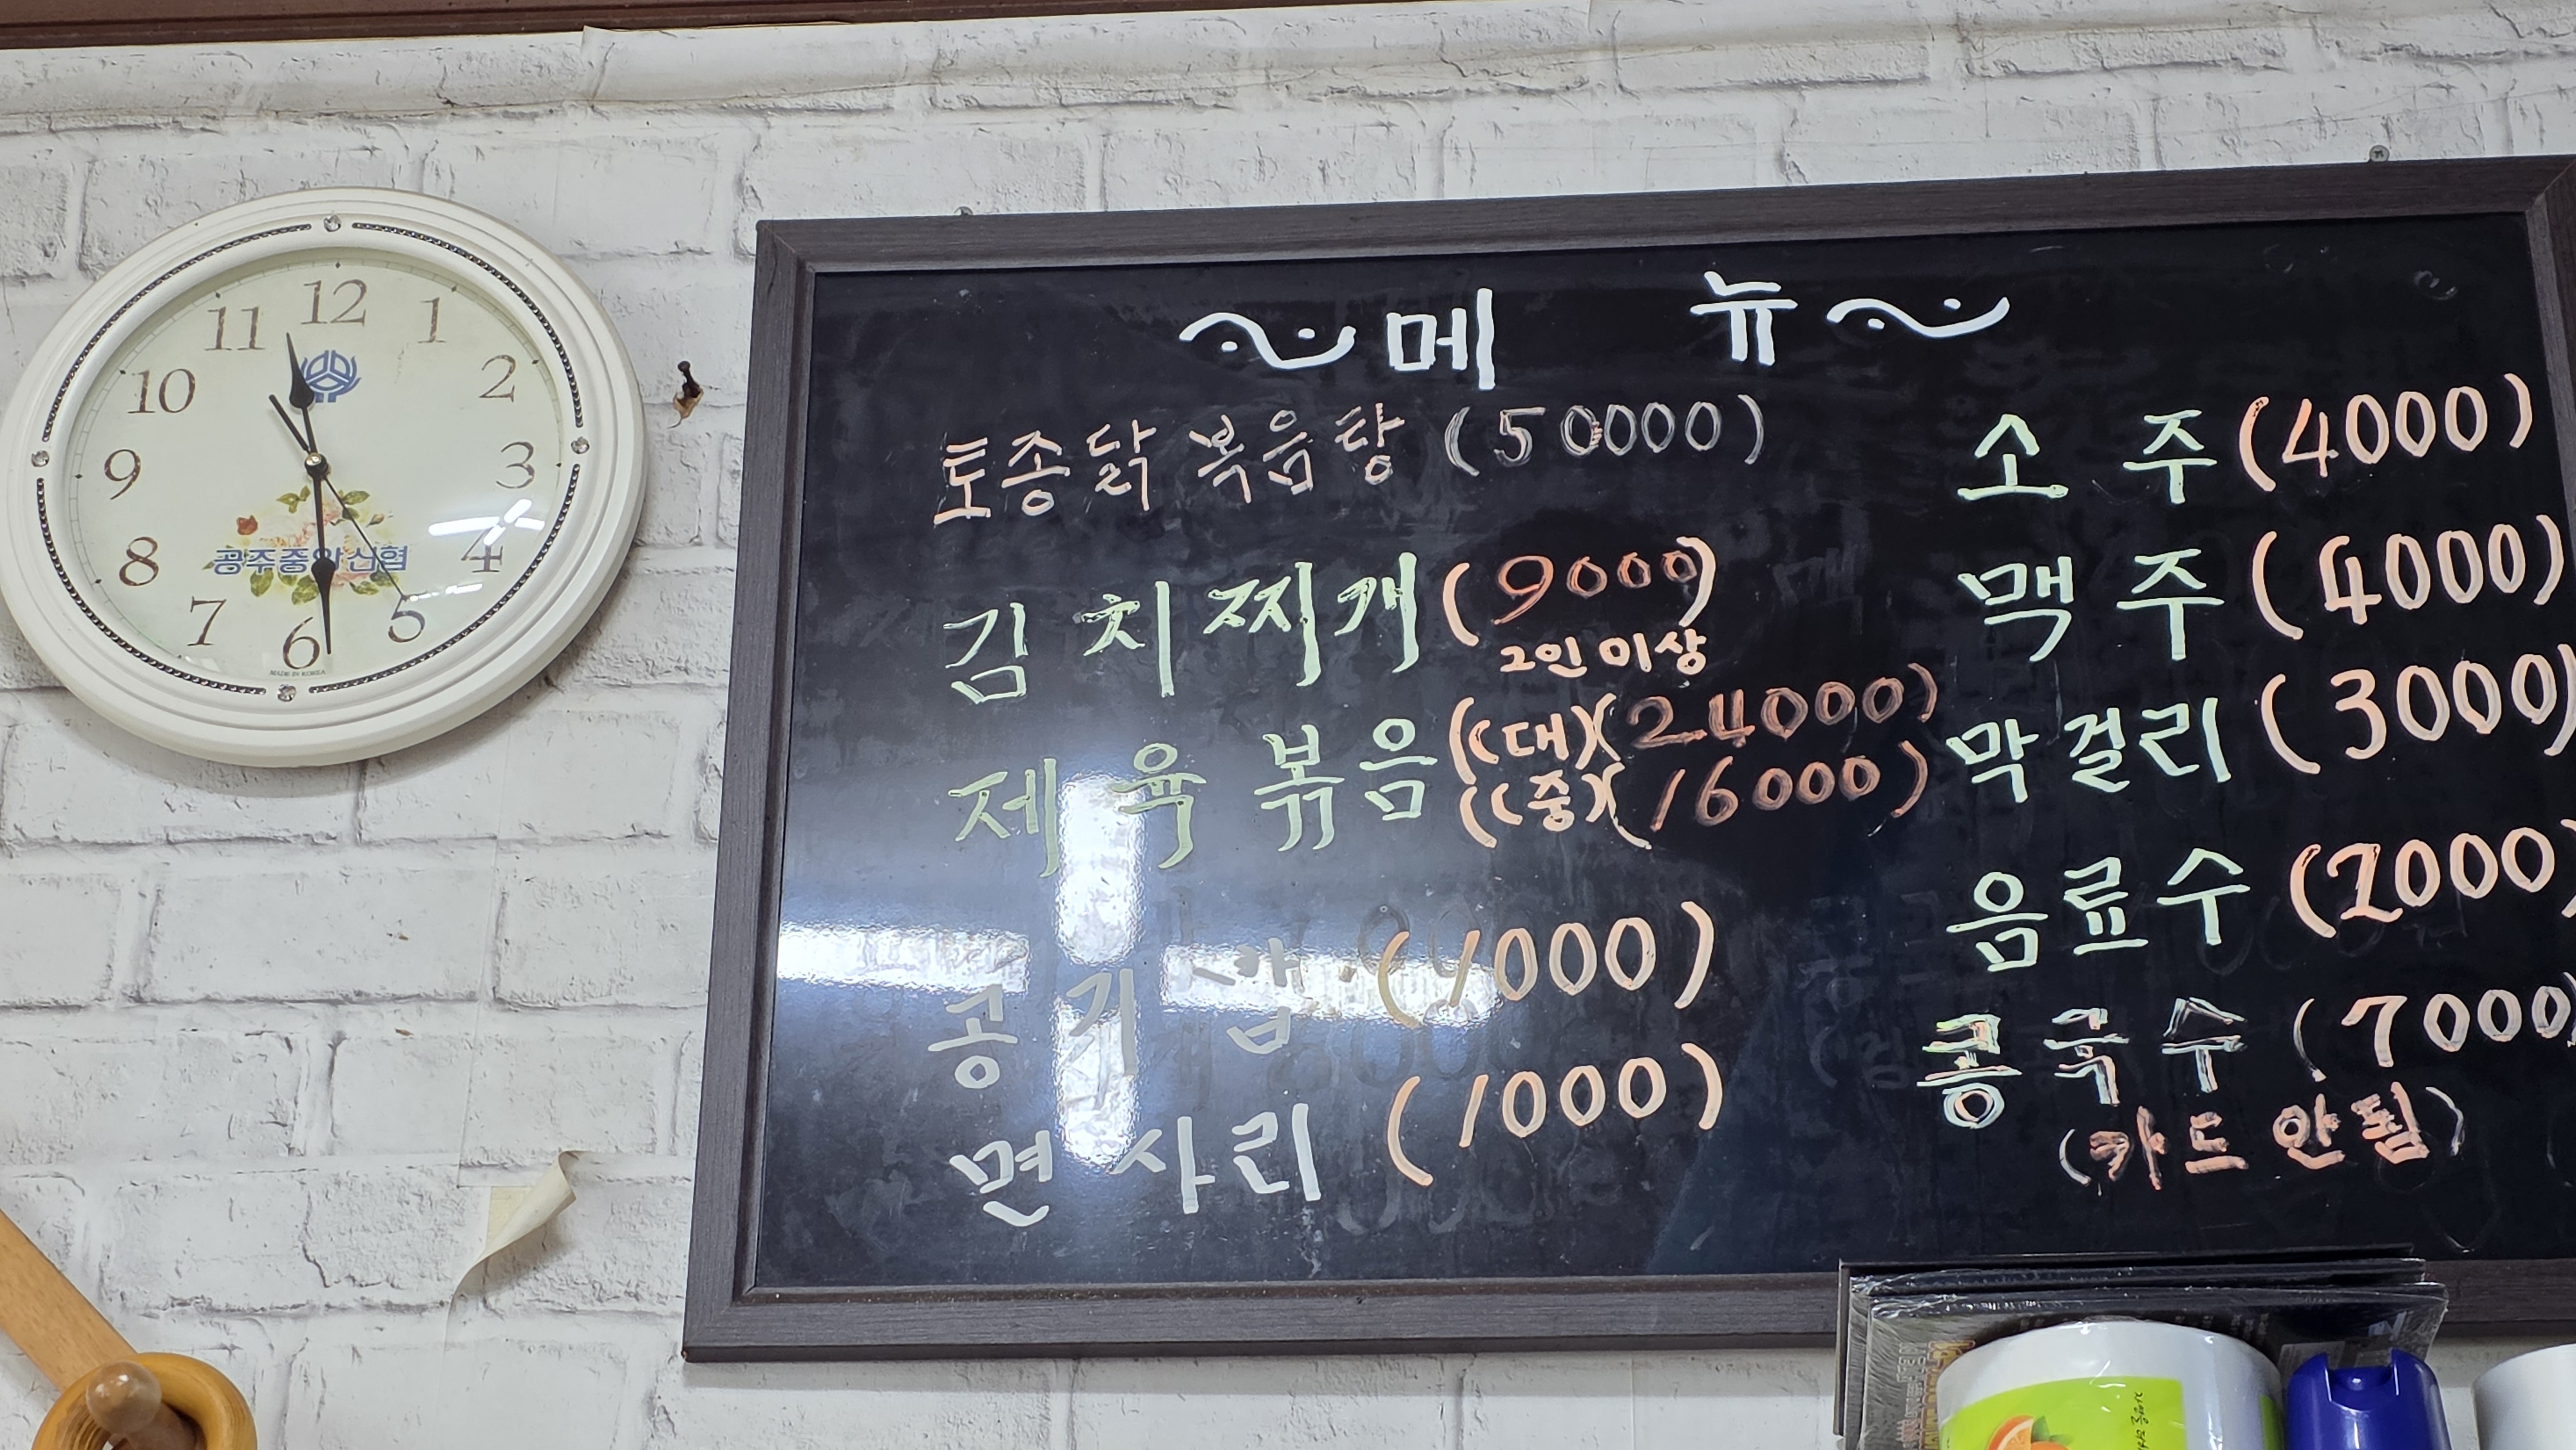 12
1
2
3
4
5
6
7
8
9
10
11
공주중앙신협
MADE IN KOREA
~메 뉴~
토종닭 볶음탕 (50000)
김치찌개 (9000)
2인 이상
제육볶음 ((대)(24000)
((중)(16000)
공기밥 (1000)
면사리 (1000)
소주 (4000)
맥주 (4000)
막걸리 (3000)
음료수 (2000)
콩국수 (7000)
(카드 안됨)